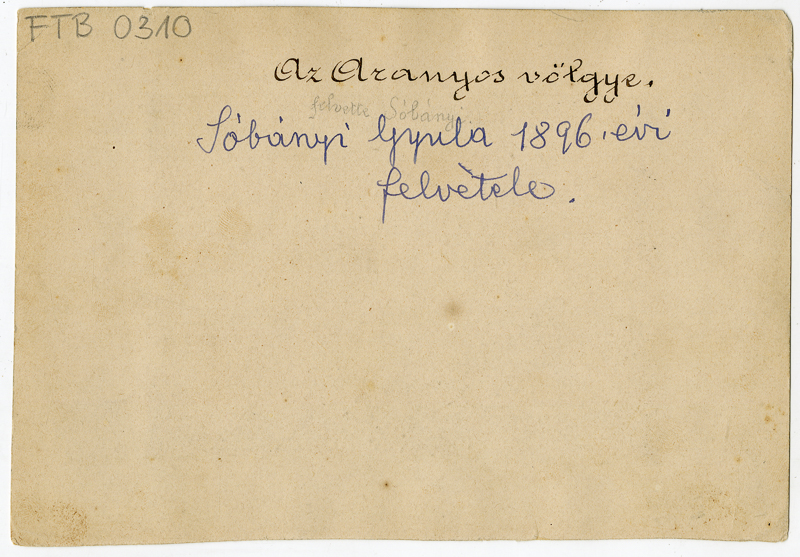 FTB 0310
Az Aranyos völgye.
felvette Sóbányi.
Sóbányi Gyula 1896. évi
felvétele.